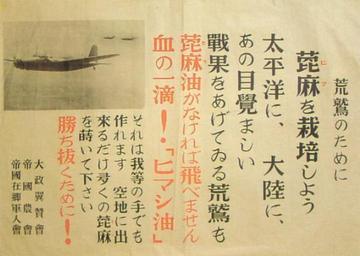 荒鷲のために
蓖麻を栽培しよう
太平洋に、大陸に、
あの目覺ましい
戰果をあげてゐる荒鷲も
蓖麻油がなければ飛べません
血の一滴！「ヒマシ油」
それは我等の手でも
作れます 空地に出
來るだけ多くの蓖麻
を蒔いて下さい
勝ち抜くために！
大政翼賛會
帝國農會
帝國在郷軍人會